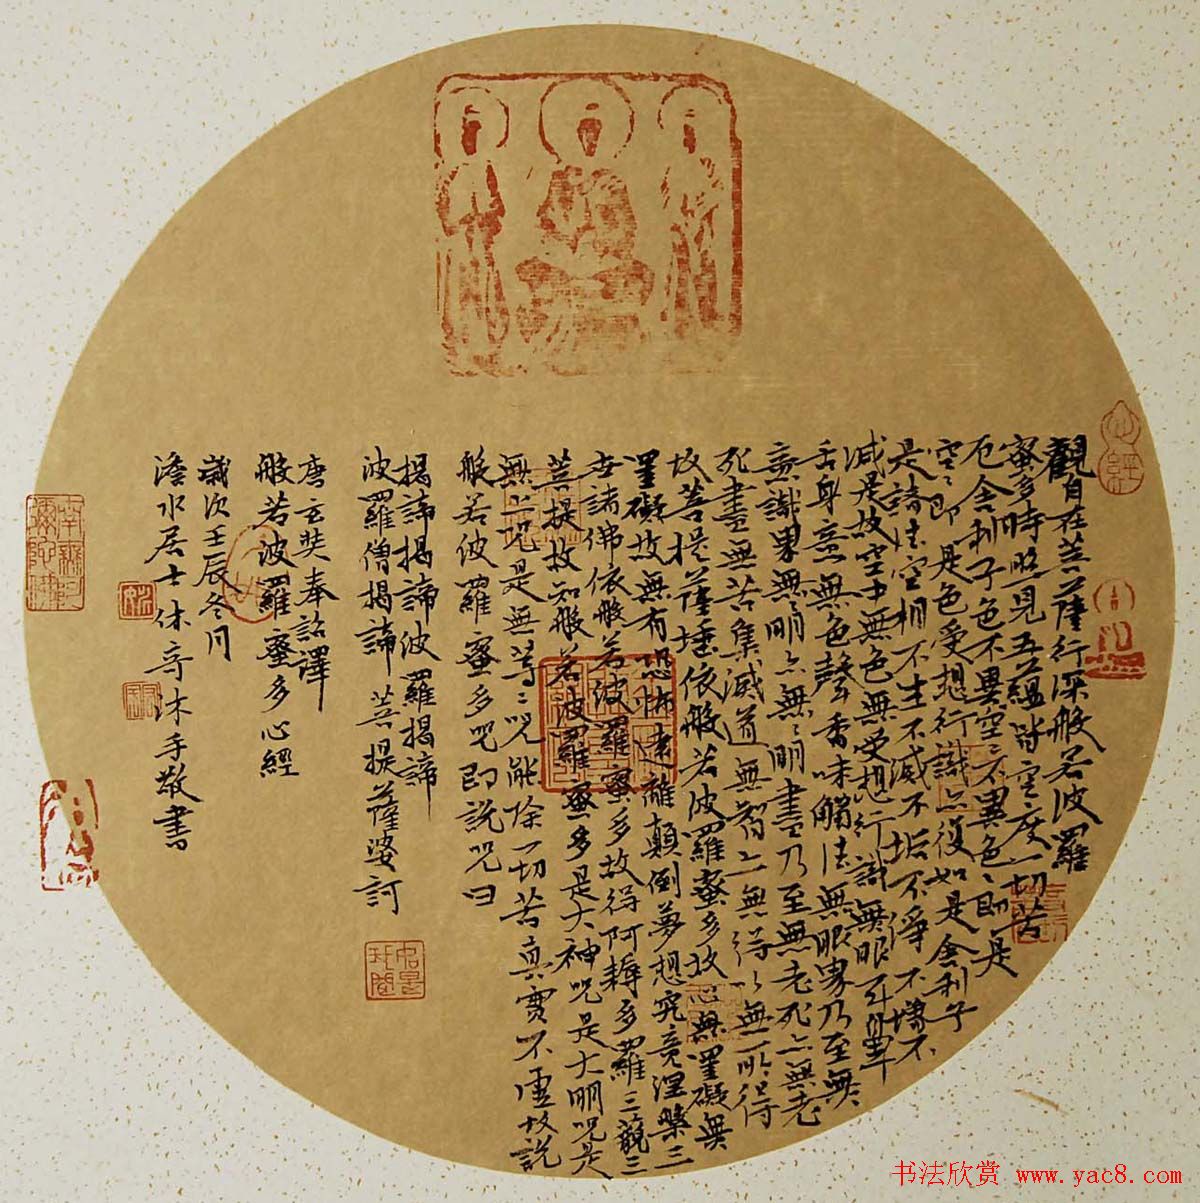 觀自在菩薩行深般若波羅
蜜多時照見五蘊皆空度一切苦
厄舍利子色不異空空不異色色即是
空空即是色受想行識亦復如是舍利子
是諸法空相不生不滅不垢不淨不增不
減是故空中無色無受想行識無眼耳鼻
舌身意無色聲香味觸法無眼界乃至無
意識界無無明亦無無明盡乃至無老死亦無老
死盡無苦集滅道無智亦無得以無所得
故菩提薩埵依般若波羅蜜多故心無罣礙無
罣礙故無有恐怖遠離顛倒夢想究竟涅槃三
世諸佛依般若波羅蜜多故得阿耨多羅三藐三
菩提故知般若波羅蜜多是大神咒是大明咒是
無上咒是無等等咒能除一切苦真實不虛故說
般若波羅蜜多咒即說咒曰
揭諦揭諦波羅揭諦
波羅僧揭諦菩提薩婆訶
唐玄奘奉詔譯
般若波羅蜜多心經
歲次壬辰冬月
居士休奇沐手敬書
心經
南無阿彌陀佛
书法欣赏 www.yac8.com